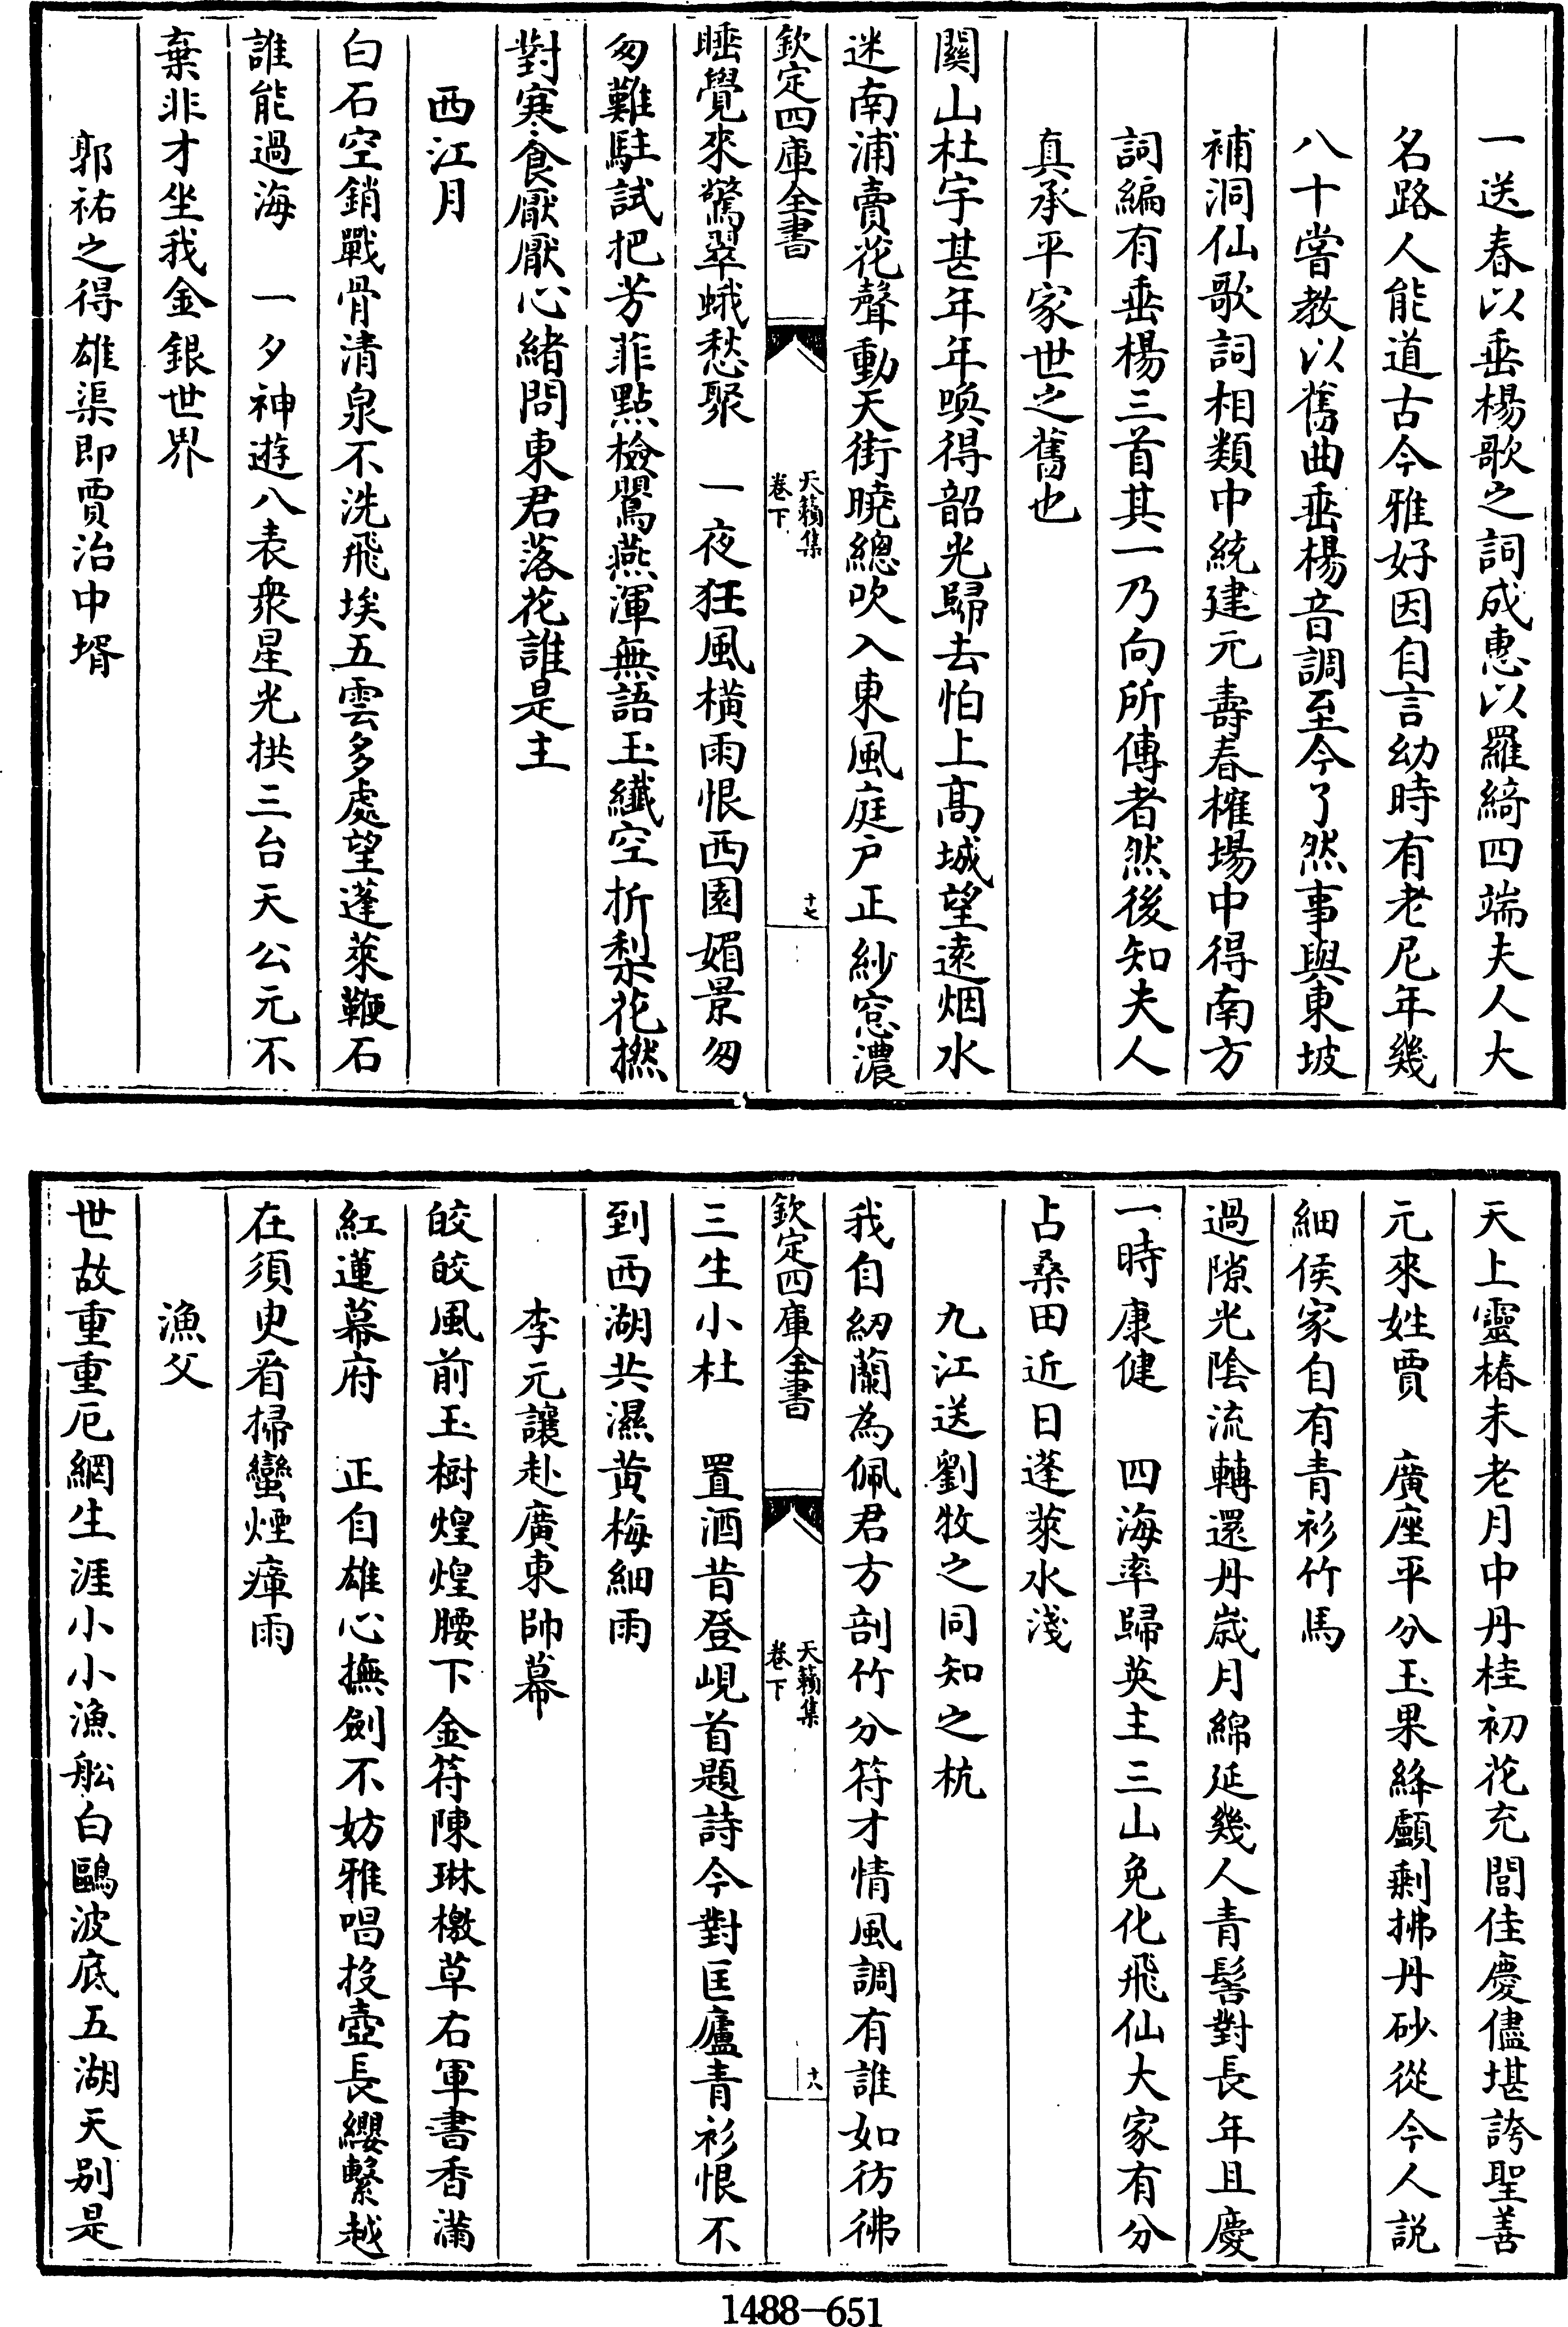 一送春以垂楊歌之詞成惠以羅綺四端夫人大
名路人能道古今雅好因自言幼時有老尼年幾
八十嘗教以舊曲垂楊音調至今了然事與東坡
補洞仙歌詞相類中統建元壽春榷場中得南方
詞編有垂楊三首其一乃向所傳者然後知夫人
真承平家世之舊也
關山杜宇甚年年喚得韶光歸去怕上髙城望遠烟水
迷南浦賣花聲動天街曉總吹入東風庭户正紗窓濃
欽定四庫全書
天籟集
卷下
十七
睡覺來驚翠蛾愁聚　一夜狂風橫雨恨西園媚景匆
匆難駐試把芳菲點檢鸎燕渾無語玉纎空折梨花撚
對寒食厭厭心緒問東君落花誰是主
西江月
白石空銷戰骨清泉不洗飛埃五雲多處望蓬萊鞭石
誰能過海　一夕神遊八表衆星光拱三台天公元不
棄非才坐我金銀世界
郭祐之得雄渠即賈治中壻
天上靈椿未老月中丹桂初花充閭佳慶儘堪誇聖善
元來姓賈　廣座平分玉果絳顱剩拂丹砂從今人説
細侯家自有青衫竹馬
過隙光陰流轉還丹歲月綿延幾人青髩對長年且慶
一時康健　四海率歸英主三山免化飛仙大家有分
占桑田近日蓬萊水淺
九江送劉牧之同知之杭
我自紉蘭為佩君方剖竹分符才情風調有誰如彷彿
欽定四庫全書
天籟集
卷下
十八
三生小杜　置酒昔登峴首題詩今對匡廬青衫恨不
到西湖共濕黄梅細雨
李元讓赴廣東帥幕
皎皎風前玉樹煌煌腰下金符陳琳檄草右軍書香滿
紅蓮幕府　正自雄心撫劍不妨雅唱投壺長纓繫越
在須臾看掃蠻煙瘴雨
漁父
世故重重厄網生涯小小漁船白鷗波底五湖天别是
1488—651